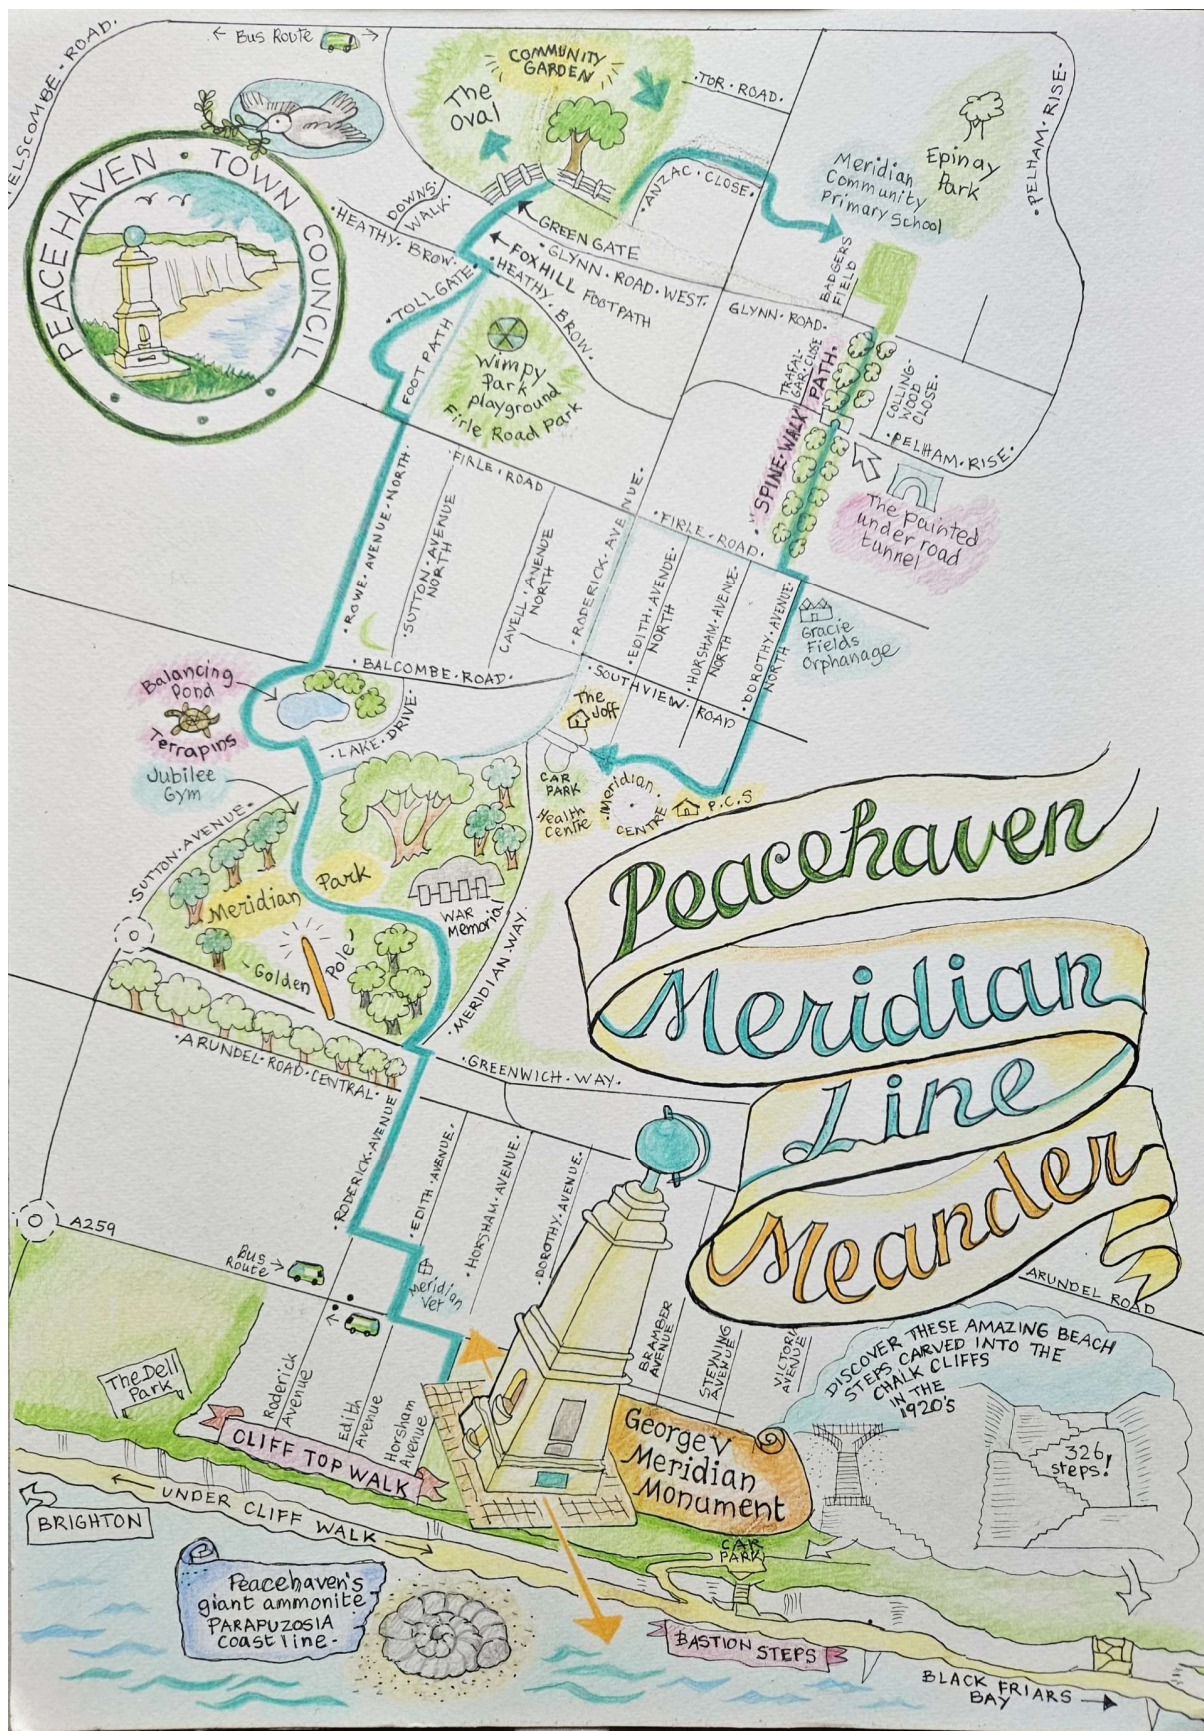 ← BUS ROUTE →
TELSCOMBE·ROAD·
COMMUNITY
GARDEN
The
Oval
·TOR·ROAD·
·PELHAM·RISE·
Epinay
Park
Meridian
Community
Primary School
PEACEHAVEN · TOWN COUNCIL
·DOWNS·
WALK·
·HEATHY·BROW·
·ANZAC·CLOSE·
GREEN GATE
FOXHILL FOOTPATH
·GLYNN·ROAD·WEST·
·HEATHY·BROW·
GLYNN·ROAD·
BADGERS
FIELD
·TOLLGATE·
FOOT PATH
Wimpy
Park
playground
Firle Road Park
TRAFAL-
GAR·CLOSE
·SPINE·WALK PATH·
COLLING-
WOOD
CLOSE·
·PELHAM·RISE·
The painted
under road
tunnel
·FIRLE·ROAD
·FIRLE·ROAD·
·ROWE·AVENUE·NORTH·
·SUTTON·AVENUE
NORTH
CAVELL·AVENUE
NORTH·
·RODERICK·AVENUE·
·EDITH·AVENUE·
NORTH
·HORSHAM·AVENUE·
NORTH
·DOROTHY·AVENUE·
NORTH
Gracie
Fields
Orphanage
·BALCOMBE·ROAD·
·SOUTHVIEW·ROAD
Balancing
Pond
Terrapins
·LAKE·DRIVE·
The
Joff
Jubilee
Gym
CAR
PARK
Health
Centre
·Meridian·
CENTRE
P.C.S
·SUTTON·AVENUE·
Meridian Park
WAR
Memorial
-Golden Pole-
·MERIDIAN·WAY·
Peacehaven
Meridian
Line
Meander
·ARUNDEL·ROAD·CENTRAL·
·GREENWICH·WAY·
·RODERICK·AVENUE
·EDITH·AVENUE·
·HORSHAM·AVENUE·
·DOROTHY·AVENUE·
A259
Bus
Route →
Meridian
Vet
ARUNDEL ROAD
BRAMBER
AVENUE
STEYNING
AVENUE
VICTORIA
AVENUE
DISCOVER THESE AMAZING BEACH
STEPS CARVED INTO THE
CHALK CLIFFS
IN THE
1920'S
326
steps!
The Dell
Park
Roderick
Avenue
Edith
Avenue
Horsham
Avenue
CLIFF TOP WALK
George V
Meridian
Monument
← UNDER CLIFF WALK →
BRIGHTON
CAR
PARK
Peacehaven's
giant ammonite
PARAPUZOSIA
coastline-
BASTION STEPS
BLACK FRIARS
BAY →